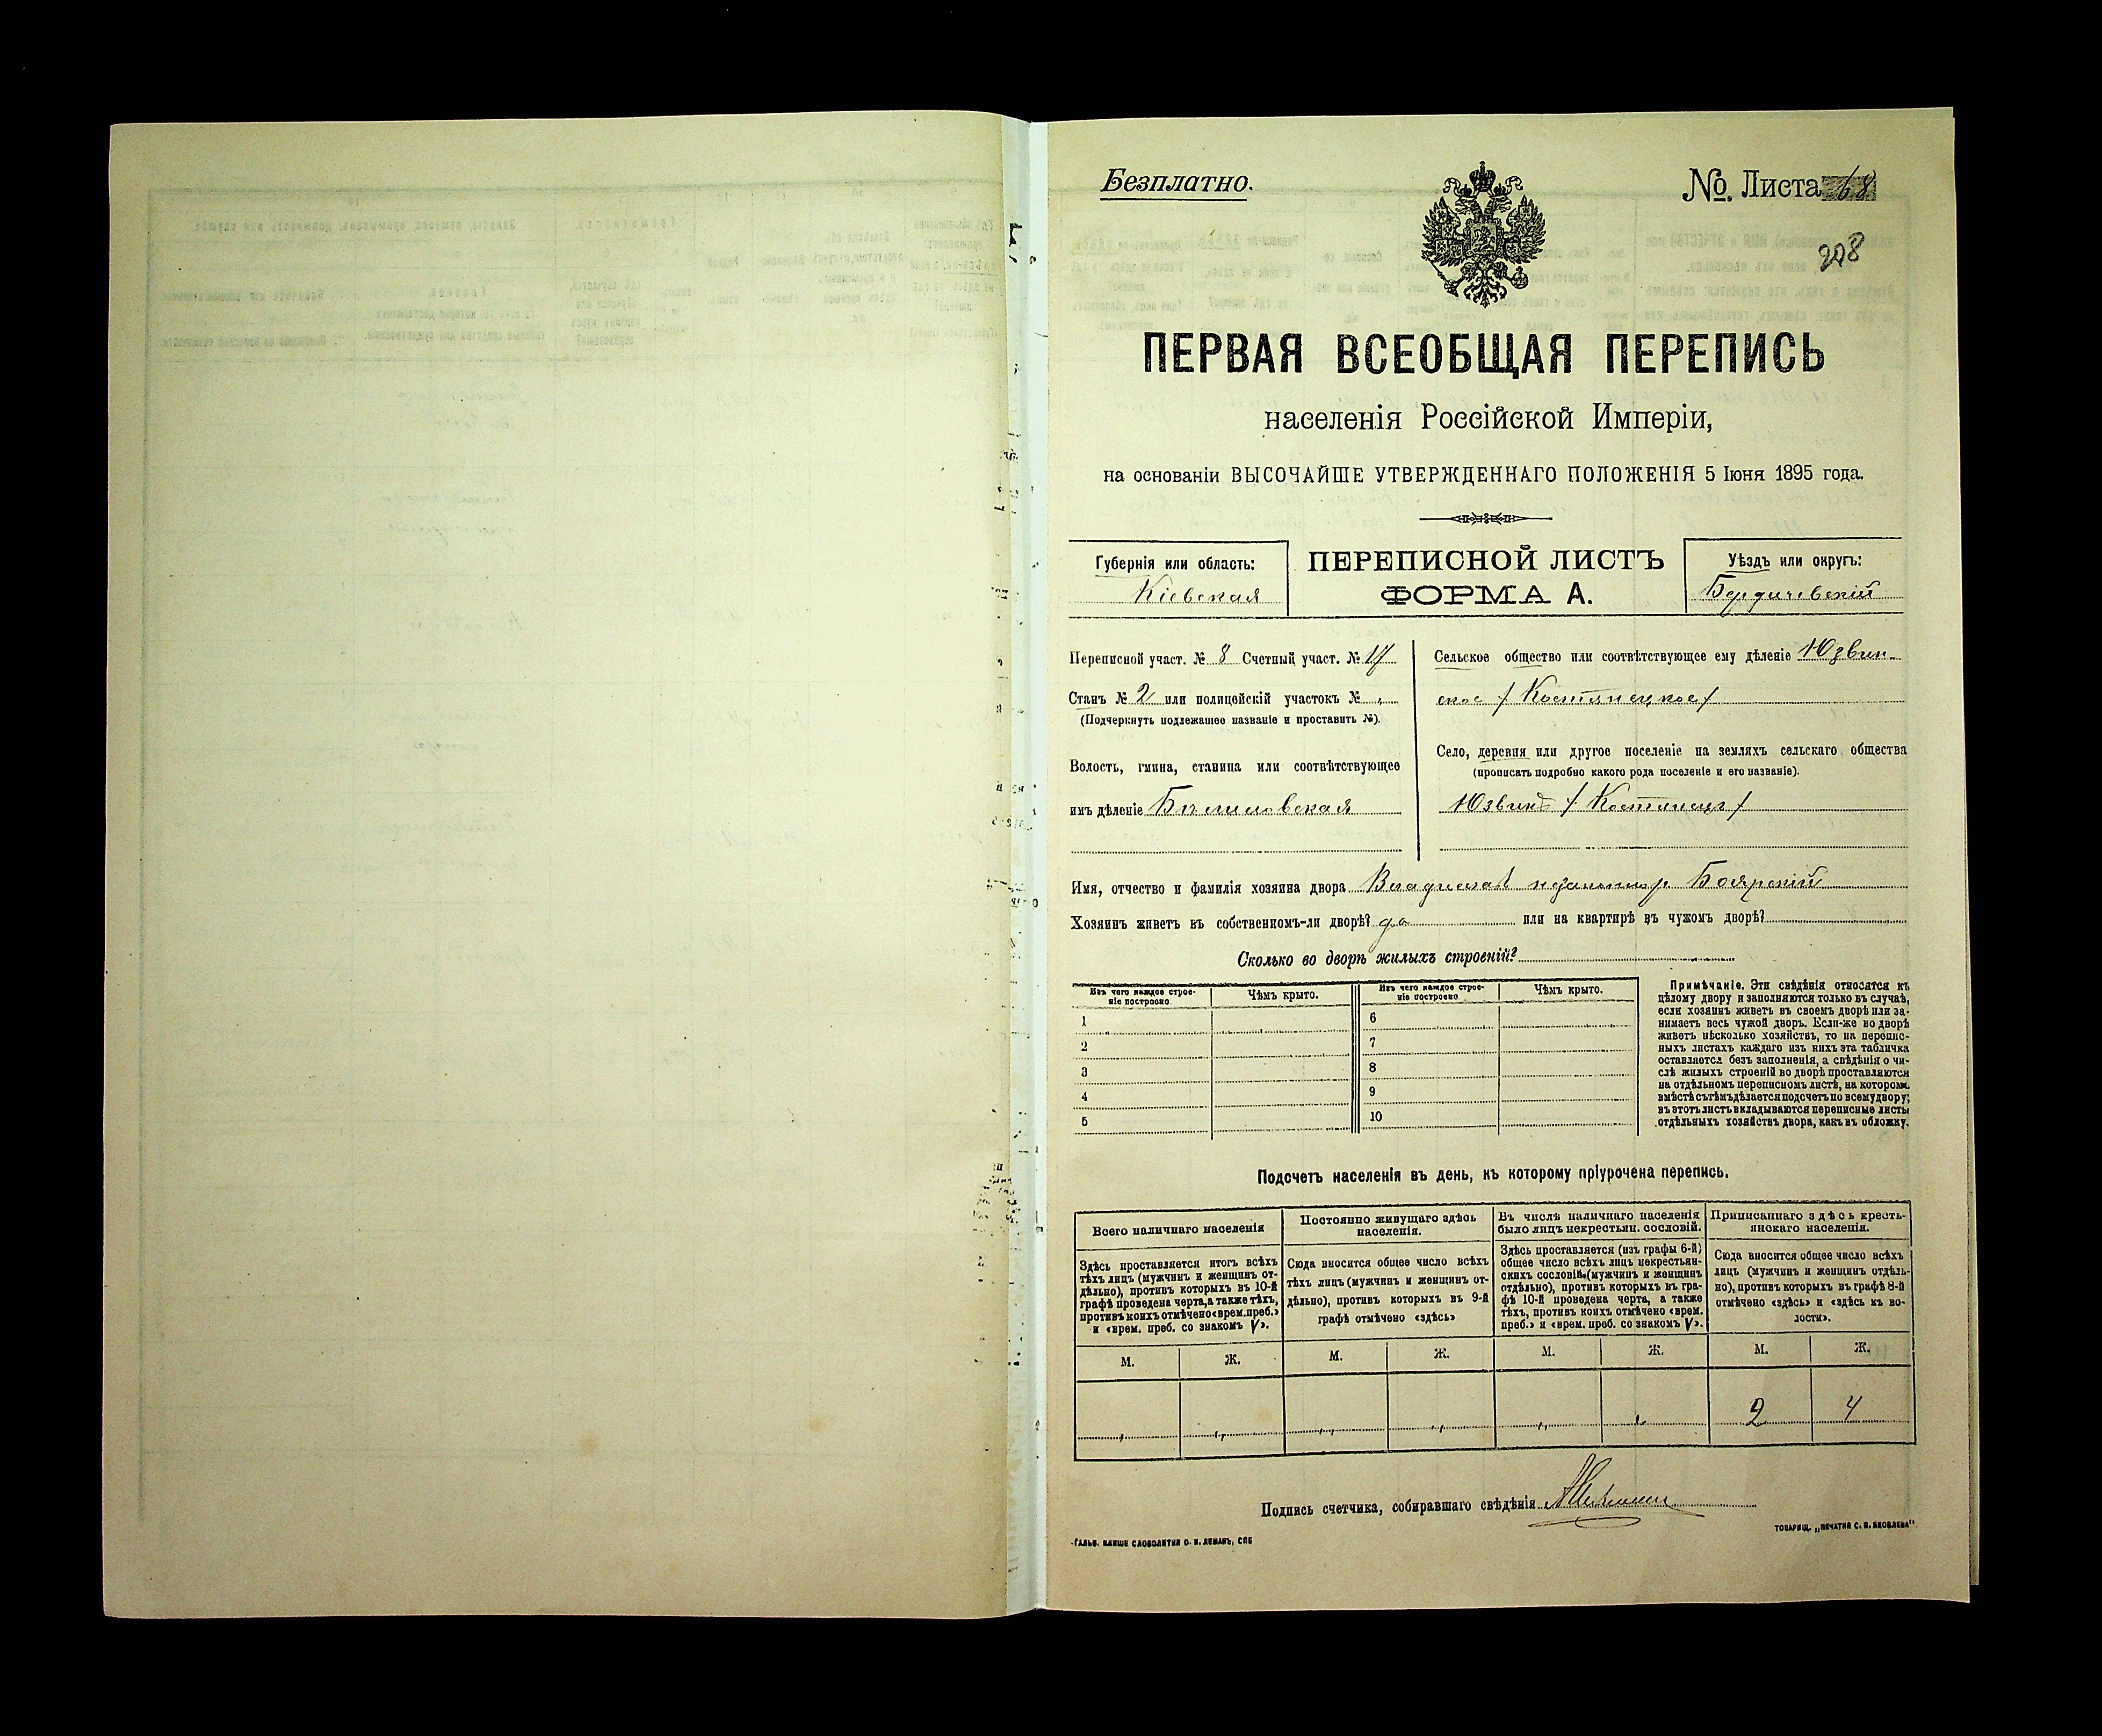 Безплатно.
№. Листа 68
298
ПЕРВАЯ ВСЕОБЩАЯ ПЕРЕПИСЬ
населенія Россійской Имперіи,
на основаніи ВЫСОЧАЙШЕ УТВЕРЖДЕННАГО ПОЛОЖЕНІЯ 5 Іюня 1895 года.
Губернія или область:
Кіевская
ПЕРЕПИСНОЙ ЛИСТЪ
ФОРМА А.
Уѣздъ или округъ:
Бердичевскій
Переписной участ. № 8 Счетный участ. № 17
Станъ № 2 или полицейскій участокъ №
(Подчеркнуть подлежащее названіе и проставить №).
Волость, гмина, станица или соотвѣтствующее
имъ дѣленіе Бѣлиловская
Сельское общество или соотвѣтствующее ему дѣленіе Юзвин-
ское / Костянецкое /
Село, деревня или другое поселеніе на земляхъ сельскаго общества
(прописать подробно какого рода поселеніе и его названіе).
Юзвинъ / Костинецъ /
Имя, отчество и фамилія хозяина двора Владиславъ Боярскій
Хозяинъ живетъ въ собственномъ-ли дворѣ? да или на квартирѣ въ чужомъ дворѣ?
Сколько во дворѣ жилыхъ строеній?
Изъ чего каждое строе-
ніе построено.
Чѣмъ крыто.
Изъ чего каждое строе-
ніе построено
Чѣмъ крыто.
1
2
3
4
5
6
7
8
9
10
Примѣчаніе. Эти свѣдѣнія относятся къ
цѣлому двору и заполняются только въ случаѣ,
если хозяинъ живетъ въ своемъ дворѣ или за-
нимаетъ весь чужой дворъ. Если-же во дворѣ
живетъ нѣсколько хозяйствъ, то на перепис-
ныхъ листахъ каждаго изъ нихъ эта табличка
оставляется безъ заполненія, а свѣдѣнія о чи-
слѣ жилыхъ строеній во дворѣ проставляются
на отдѣльномъ переписномъ листѣ, на которомъ
вмѣстѣ съ тѣмъ дѣлается подсчетъ по всему двору;
въ этотъ листъ вкладываются переписные листы
отдѣльныхъ хозяйствъ двора, какъ въ обложку.
Подсчетъ населенія въ день, къ которому пріурочена перепись.
Всего наличнаго населенія
Здѣсь проставляется итогъ всѣхъ
тѣхъ лицъ (мужчинъ и женщинъ от-
дѣльно), противъ которыхъ въ 10-й
графѣ проведена черта, а также тѣхъ,
противъ коихъ отмѣчено «врем. преб.»
и «врем. преб. со знакомъ V».
Постоянно живущаго здѣсь
населенія.
Сюда вносится общее число всѣхъ
тѣхъ лицъ (мужчинъ и женщинъ от-
дѣльно), противъ которыхъ въ 9-й
графѣ отмѣчено «здѣсь»
Въ числѣ наличнаго населенія
было лицъ некрестьян. сословій.
Здѣсь проставляется (изъ графы 6-й)
общее число всѣхъ лицъ некрестьян-
скихъ сословій (мужчинъ и женщинъ
отдѣльно), противъ которыхъ въ гра-
фѣ 10-й проведена черта, а также
тѣхъ, противъ коихъ отмѣчено «врем.
преб.» и «врем. преб. со знакомъ V».
Приписаннаго здѣсь кресть-
янскаго населенія.
Сюда вносится общее число всѣхъ
лицъ (мужчинъ и женщинъ отдѣль-
но), противъ которыхъ въ графѣ 8-й
отмѣчено «здѣсь» и «здѣсь къ во-
лости».
М. Ж. М. Ж. М. Ж. М. Ж.
2 4
Подпись счетчика, собиравшаго свѣдѣнія
ГАЛЬВ. КЛИШЕ СЛОВОЛИТНИ О. И. ЛЕМАНЪ, СПБ
ТОВАРИЩ. „ПЕЧАТНЯ С. П. ЯКОВЛЕВА“.